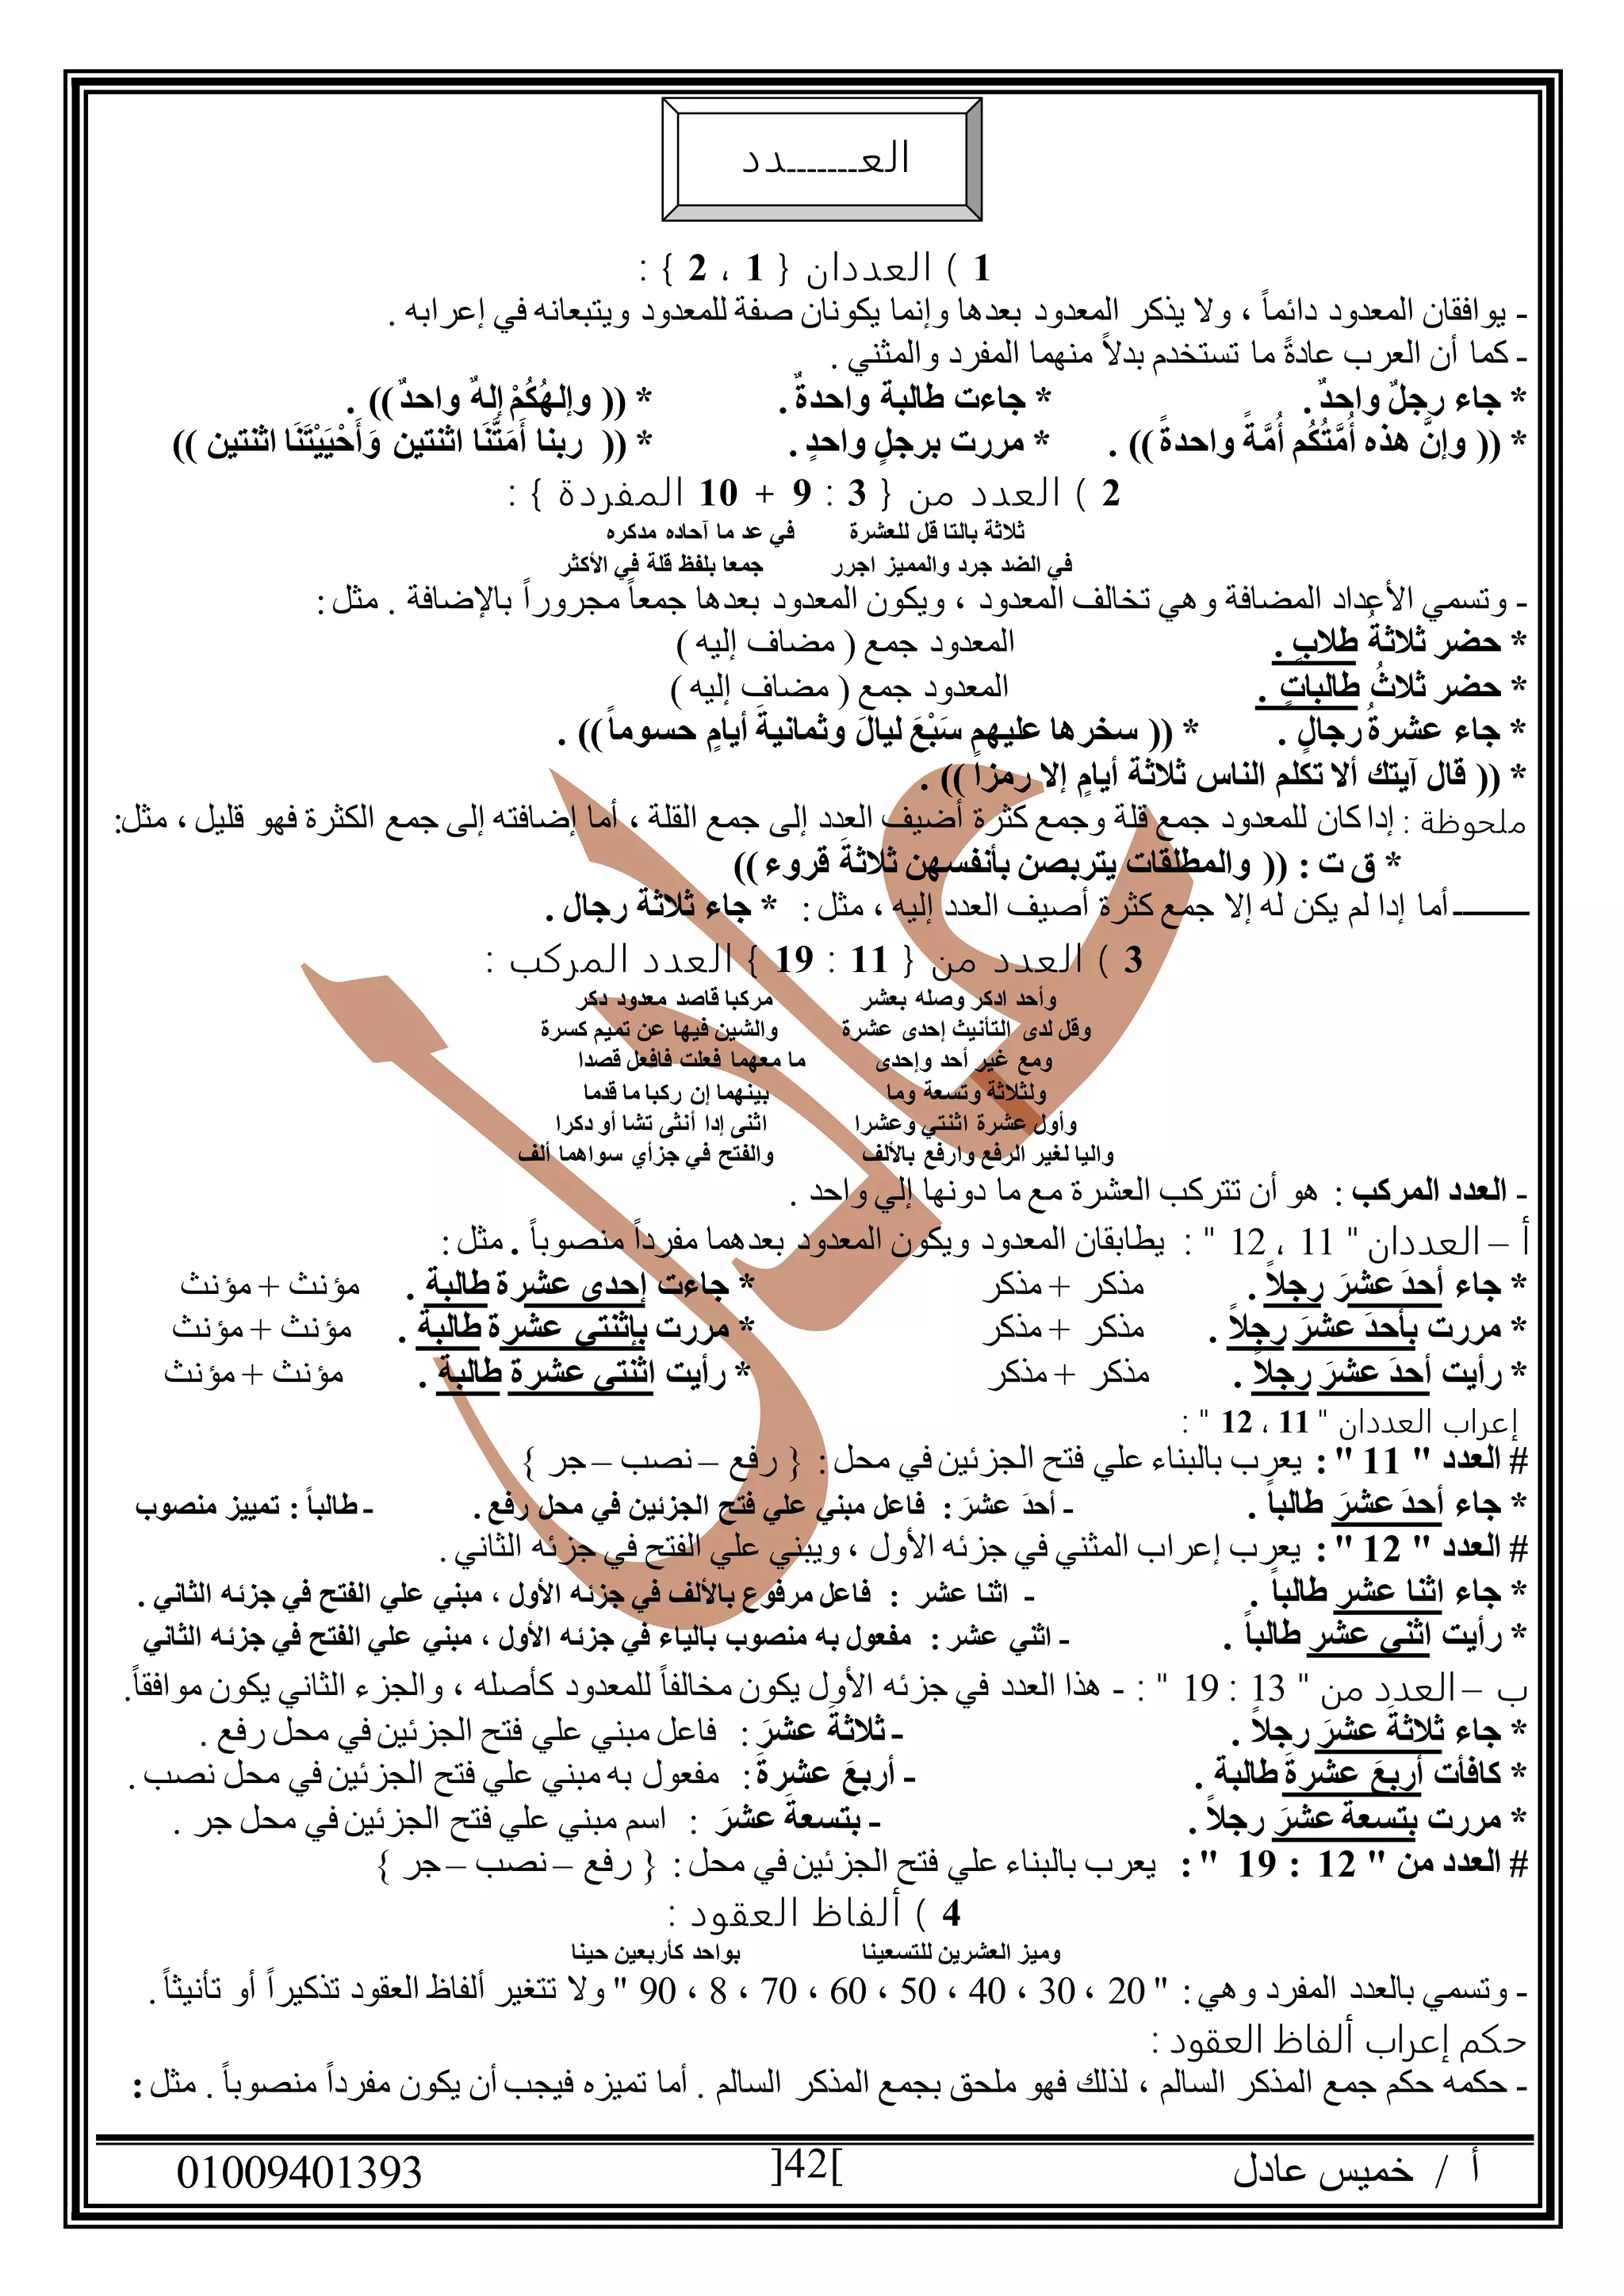 العـــــــدد
1 ) العددان { 1 ، 2 } :
- يوافقان المعدود دائماً ، ولا يذكر المعدود بعدها وإنما يكونان صفة للمعدود ويتبعانه في إعرابه .
- كما أن العرب عادةً ما تستخدم بدلاً منهما المفرد والمثني .
* جاء رجلٌ واحدٌ . * جاءت طالبة واحدةٌ . * (( وإلهُكُمْ إلهٌ واحدٌ )) .
* (( وإنَّ هذه أُمَّتُكُم أُمَّةً واحدةً )) . * مررت برجلٍ واحدٍ . * (( ربنا أَمَتَّنَا اثنتين وَأَحْيَيْتَنَا اثنتين ))
2 ) العدد من { 3 : 9 + 10 المفردة } :
ثلاثة بالتا قل للعشرة في عد ما آحاده مدكره
في الضد جرد والمميز اجرر جمعا بلفظ قلة في الأكثر
- وتسمي الأعداد المضافة وهي تخالف المعدود ، ويكون المعدود بعدها جمعاً مجروراً بالإضافة . مثل :
* حضر ثلاثةُ طلابٍ . المعدود جمع ( مضاف إليه )
* حضر ثلاثُ طالباتٍ . المعدود جمع ( مضاف إليه )
* جاء عشرةُ رجالٍ . * (( سخرها عليهم سَبْعَ ليالَ وثمانيةَ أيامٍ حسوماً )) .
* (( قال آيتك ألا تكلم الناس ثلاثة أيامٍ إلا رمزاً )) .
ملحوظة : إدا كان للمعدود جمع قلة وجمع كثرة أضيف العدد إلى جمع القلة ، أما إضافته إلى جمع الكثرة فهو قليل ، مثل:
* ق ت : (( والمطلقات يتربصن بأنفسهن ثلاثةَ قروء ))
ـــــــ أما إدا لم يكن له إلا جمع كثرة أصيف العدد إليه ، مثل : * جاء ثلاثة رجال .
3 ) العدد من { 11 : 19 } العدد المركب :
وأحد ادكر وصله بعشر مركبا قاصد معدود دكر
وقل لدى التأنيث إحدى عشرة والشين فيها عن تميم كسرة
ومع غير أحد وإحدى ما معهما فعلت فافعل قصدا
ولثلاثة وتسعة وما بينهما إن ركبا ما قدما
وأول عشرة اثنتي وعشرا اثنى إدا أنثى تشا أو دكرا
واليا لغير الرفع وارفع بالألف والفتح في جزأي سواهما ألف
- العدد المركب : هو أن تتركب العشرة مع ما دونها إلي واحد .
أ – العددان " 11 ، 12 " : يطابقان المعدود ويكون المعدود بعدهما مفرداً منصوباً . مثل :
* جاء أحدَ عشرَ رجلاً . مذكر + مذكر * جاءت إحدى عشرة طالبة . مؤنث + مؤنث
* مررت بأحدَ عشرَ رجلاً . مذكر + مذكر * مررت بإثنتي عشرة طالبة . مؤنث + مؤنث
* رأيت أحدَ عشرَ رجلاً . مذكر + مذكر * رأيت اثنتي عشرة طالبة . مؤنث + مؤنث
إعراب العددان " 11 ، 12 " :
# العدد " 11 " : يعرب بالبناء علي فتح الجزئين في محل : { رفع – نصب – جر }
* جاء أحدَ عشرَ طالباً . - أحدَ عشرَ : فاعل مبني علي فتح الجزئين في محل رفع . - طالباً : تمييز منصوب
# العدد " 12 " : يعرب إعراب المثني في جزئه الأول ، ويبني علي الفتح في جزئه الثاني .
* جاء اثنا عشر طالباً . - اثنا عشر : فاعل مرفوع بالألف في جزئه الأول ، مبني علي الفتح في جزئه الثاني .
* رأيت اثني عشر طالباً . - اثني عشر : مفعول به منصوب بالياء في جزئه الأول ، مبني علي الفتح في جزئه الثاني
ب – العدد من " 13 : 19 " : - هذا العدد في جزئه الأول يكون مخالفاً للمعدود كأصله ، والجزء الثاني يكون موافقاً.
* جاء ثلاثةَ عشرَ رجلاً . - ثلاثةَ عشرَ : فاعل مبني علي فتح الجزئين في محل رفع .
* كافأت أربعَ عشرةَ طالبة . - أربعَ عشرةَ : مفعول به مبني علي فتح الجزئين في محل نصب .
* مررت بتسعة عشرَ رجلاً . - بتسعةَ عشرَ : اسم مبني علي فتح الجزئين في محل جر .
# العدد من " 12 : 19 " : يعرب بالبناء علي فتح الجزئين في محل : { رفع – نصب – جر }
4 ) ألفاظ العقود :
وميز العشرين للتسعينا بواحد كأربعين حينا
- وتسمي بالعدد المفرد وهي : " 20 ، 30 ، 40 ، 50 ، 60 ، 70 ، 8 ، 90 " ولا تتغير ألفاظ العقود تذكيراً أو تأنيثاً .
حكم إعراب ألفاظ العقود :
- حكمه حكم جمع المذكر السالم ، لذلك فهو ملحق بجمع المذكر السالم . أما تميزه فيجب أن يكون مفرداً منصوباً . مثل :
أ / خميس عادل ]42[ 01009401393
عادل